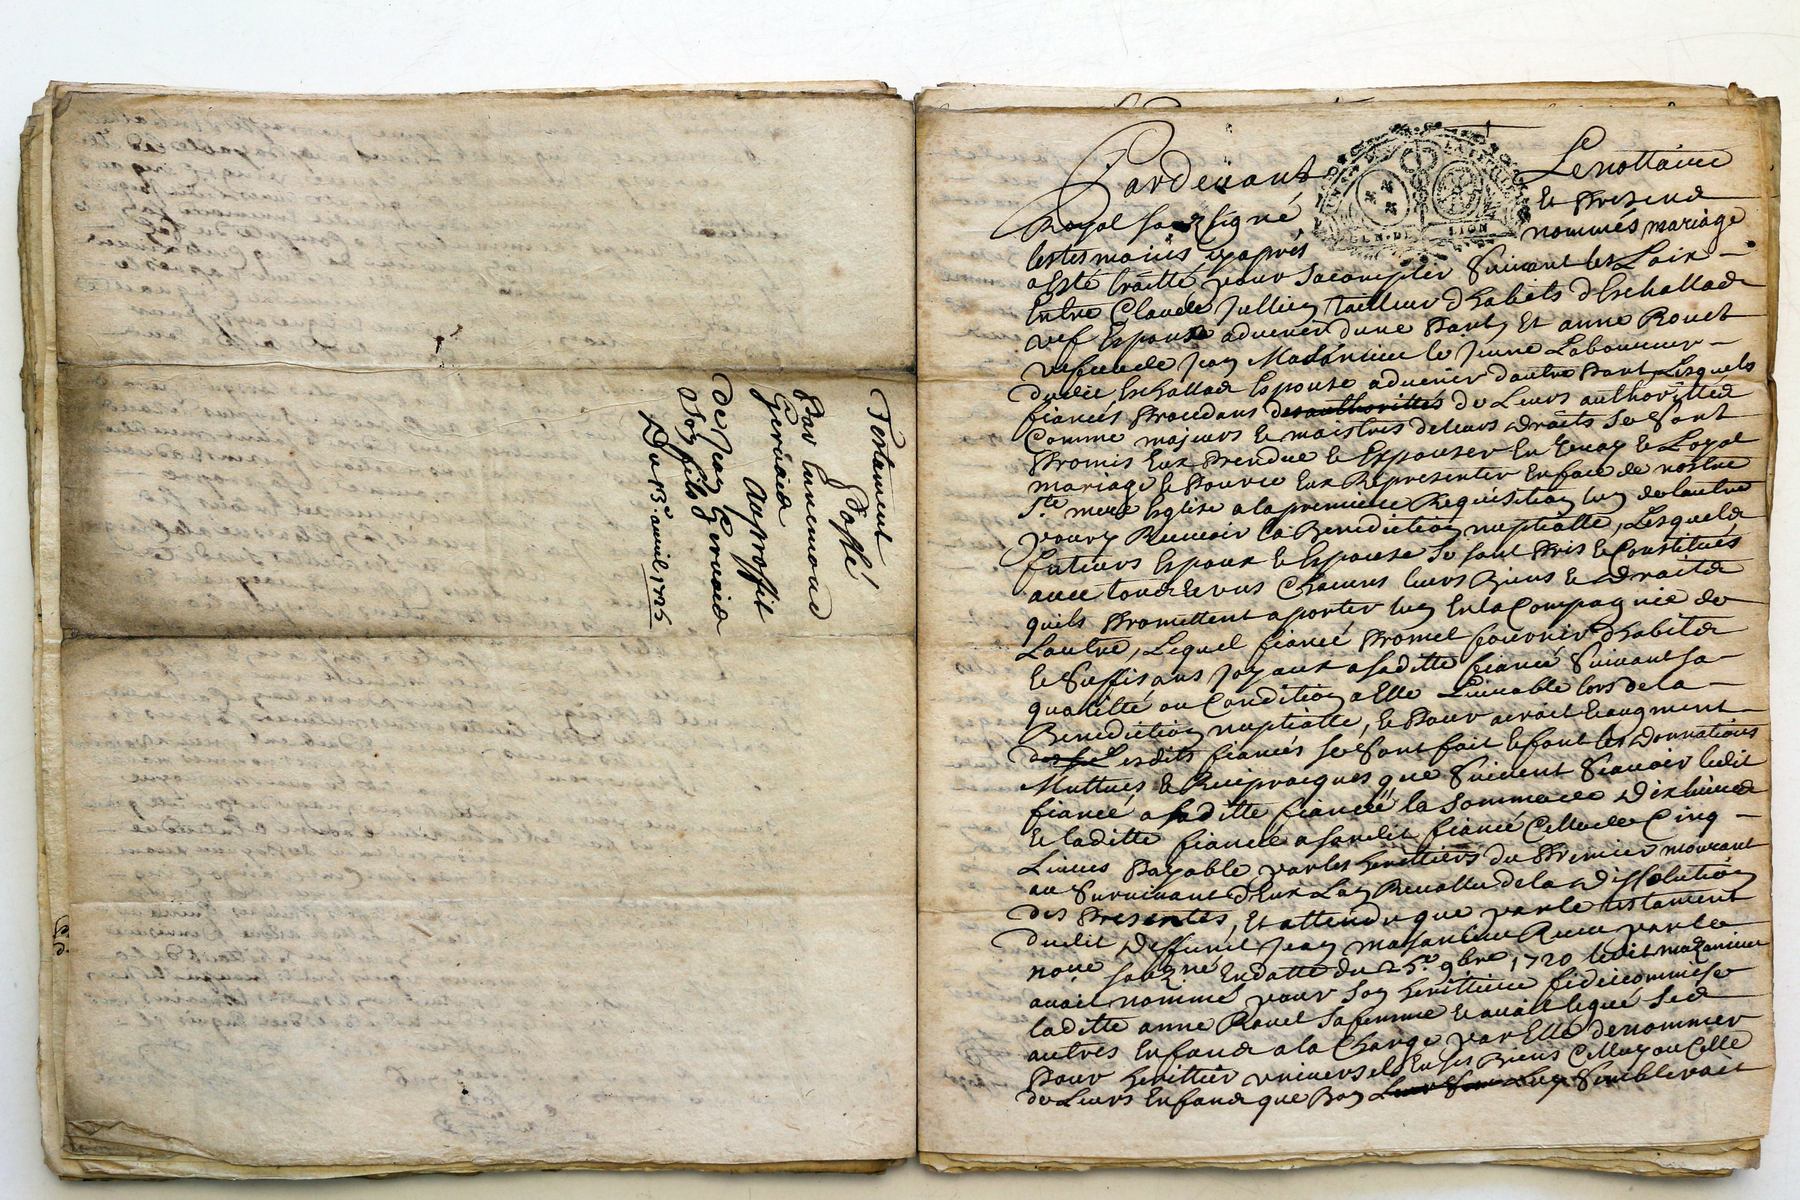 Testament
Passé
Par Ennemond
Gervaid
au proffit
de Jean Gervaid
Son fils
Du 13e avril 1725
Pardevant Le nottaire
Royal sousigné et Presend
les tesmoins cy aprés nommés mariage
a esté traitté pour sacomplir Suivant les Loix
Entre Claude Jullien Tailleur dhabits dEschallad
vef Espoux advenir dune Part, Et anne Rouet
vefve de Jean Mazenieu le Jeune Laboureur
dudit Eschallad Espouse advenir dautre Part Lesquels
fiancés Procedans des authorittés de Leurs authorittéd
Comme majeurs et maistres de leurs droits Se Sont
Promis Eux Prendre et Espouser En vray et Loyal
mariage et Pource Eux Representer En face de nostre
Ste mere Eglise a la premiere Requisition lun de lautre
pour y Recevoir la Benediction nuptialle, Lesqueld
futturs Espoux et Espouse Se sont Pris et Constitués
avec tous et uns Chacuns leurs Biens et droitd
quils Promettent aporter lun En la Compagnie de
Lautre, Lequel fiancé Promet fournir dhabitd
et Suffisans Joyaux a saditte fiancée Suivant sa
quallitté ou Condition a Elle Livrable lors de la
Benediction nuptialle, et Pour acroit et augment
Lesdits fiancés se sont fait et font les donnations
Muttues et Reciproques que Suivent Scavoir ledit
fiancé a saditte fiancée la somme de dix livres
Et laditte fiancée a sondit fiancé Celle de Cinq
Livres Payable par les herittiers du Premier mourant
au Survivant dEux Lan Revollu de la dissolution
des Presentes, Et attendu que par le testament
dudit deffunct Jean Mazenieu Receu par le
nore sousigné En datte du 25e 9bre 1720 ledit mazenieu
avoit nommé pour son herittiere fideicommise
laditte anne Rouet sa femme et avoit legué Sed
autres Enfand a la Charge par Elle de nommer
Pour herittier universel En ses Biens Celluy ou Celle
de Leurs Enfand que Bon Luy Sembleroit